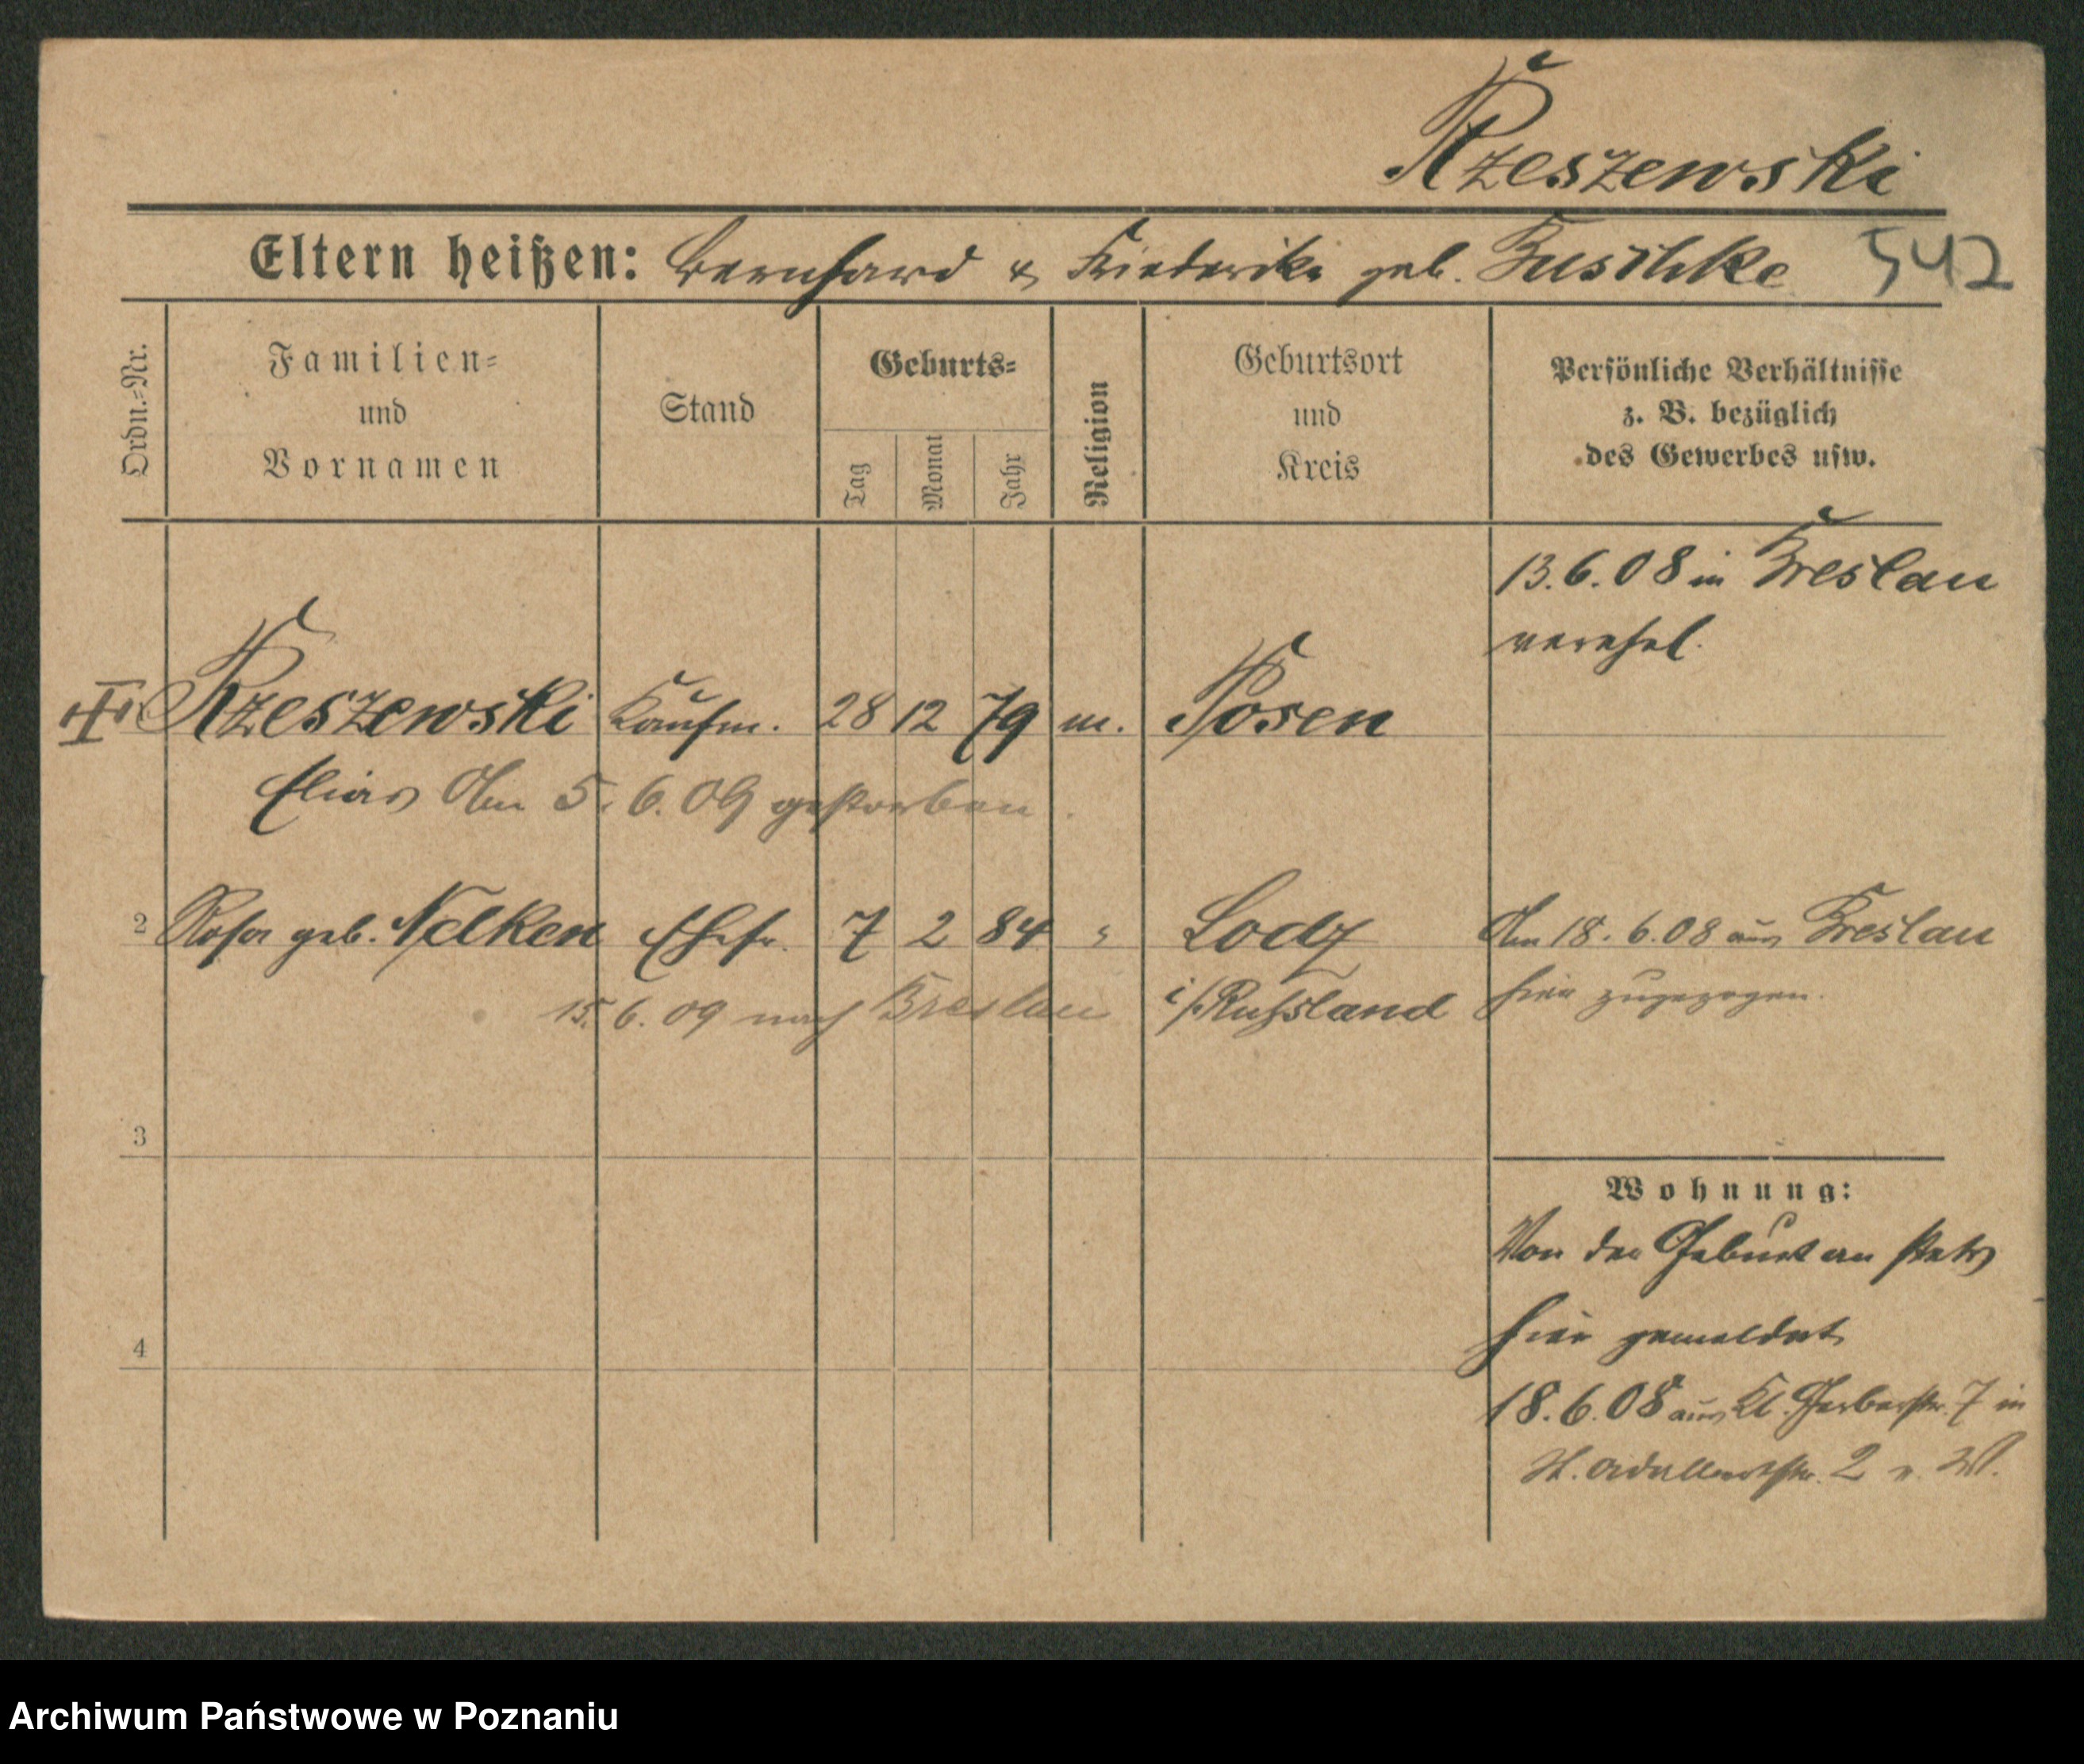 Rzeszewski
Eltern heißen: Bernhard & Friederike geb. 542
Ordn.-Nr.
Familien-
und
Vornamen
Stand
Geburts-
Tag
Monat
Jahr
Religion
Geburtsort
und
Kreis
Persönliche Verhältnisse
z. B. bezüglich
des Gewerbes usw.
13.6.08 in Breslau
verehel.
Rzeszewski Kaufm. 28 12 79 m. Posen
Elias Am 5.6.09 gestorben
2 Rosa geb. Nelken Ehefr. 7 2 84 " Lodz Am 18.6.08 aus Breslau
15.6.09 nach Breslau i/Russland hier zugezogen.
3
Wohnung:
Von der Geburt an stets
hier gemeldet
4
18.6.08 aus Kl. Gerberstr. 7 in
St. Adalbertstr. 2 v. W.
Archiwum Państwowe w Poznaniu